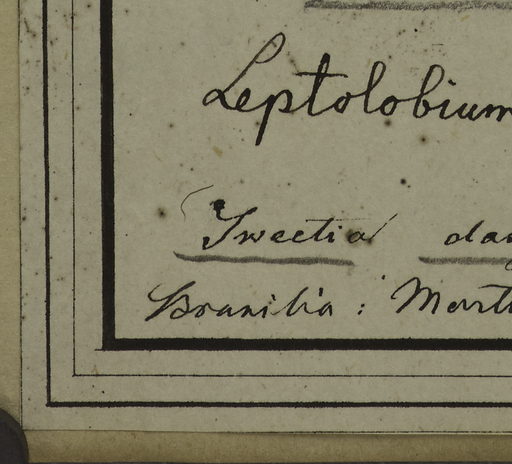 Leptolobium
Sweetia das
Brasilia : Marti